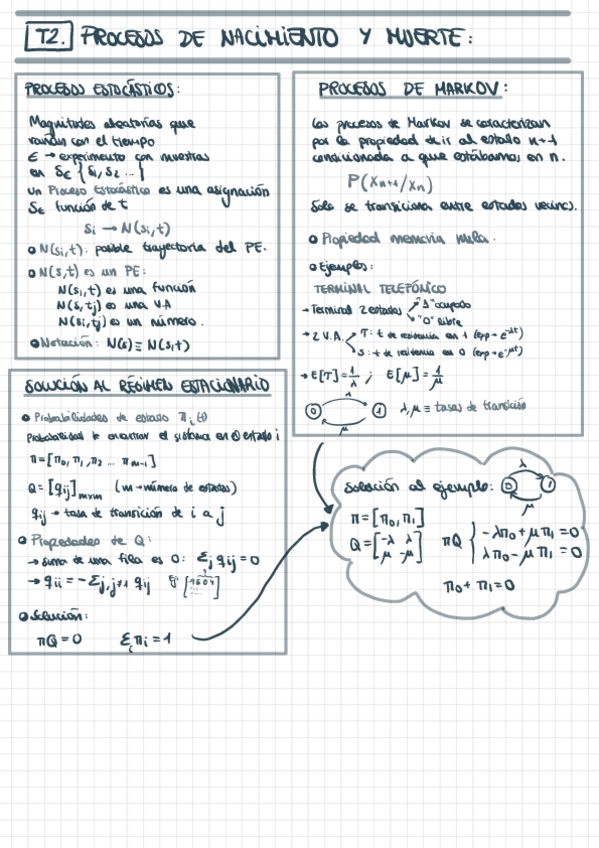 T2. PROCESOS DE NACIMIENTO Y MUERTE:
PROCESOS ESTOCÁSTICOS:
Magnitudes aleatorias que
varían con el tiempo
ε → experimento con muestras
en Sε {S1, S2 ...}
un Proceso Estocástico es una asignación
Sε función de t
Si → N(si,t)
N(si,t): posible trayectoria del PE.
N(s,t) es un PE:
N(si,t) es una función
N(s,tj) es una V.A
N(si,tj) es un número.
Notación: N(s) ≡ N(s,t)
PROCESOS DE MARKOV:
Los procesos de Markov se caracterizan
por la propiedad de ir al estado n+1
condicionada a que estábamos en n.
P(Xn+1/Xn)
Solo se transiciona entre estados vecinos.
Propiedad memoria nula.
Ejemplos:
TERMINAL TELEFÓNICO
→ Terminal 2 estados "1" ocupado
"0" libre
→ 2 V.A. T: t de residencia en 1 (exp → e^-λt)
S: t de residencia en 0 (exp → e^-μt)
→ E[T] = 1/λ ; E[μ] = 1/μ
0 λ 1 μ λ,μ ≡ tasas de transición
SOLUCIÓN AL RÉGIMEN ESTACIONARIO
Probabilidades de estado πi(t)
Probabilidad de encontrar el sistema en el estado i
π = [π0, π1, π2 ... πm-1]
Q = [qij]mxm (m → número de estados)
qij → tasa de transición de i a j
Propiedades de Q:
→ suma de una fila es 0: Σj qij = 0
→ qii = -Σj,j≠i qij
Solución:
πQ = 0 Σi πi = 1
Solución al ejemplo: 0 λ 1 μ
π = [π0, π1]
Q = [-λ λ
μ -μ]
πQ { -λπ0 + μπ1 = 0
λπ0 - μπ1 = 0
π0 + π1 = 0